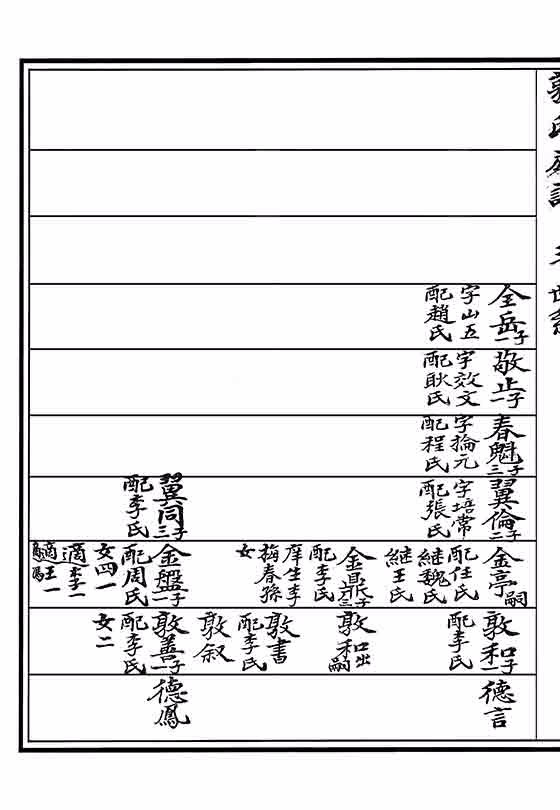 全岳一子
字山五
配趙氏
敬止一子
字效文
配耿氏
春魁三子
字掄元
配程氏
翼倫二子
字培常
配張氏
翼同三子
配李氏
金亭嗣
配任氏
继魏氏
继王氏
金鼎三子
配李氏
庠生李
梅春孫
女
金盤一子
配周氏
女四一
適李一
適王一
敦和一子
配李氏
敦和出嗣
敦書
配李氏
敦叙
敦善一子
配李氏
女二
德言
德鳳